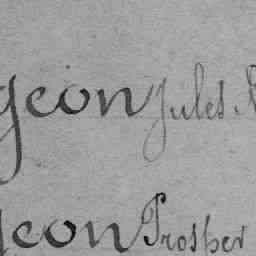 geon Jules
geon Prosper